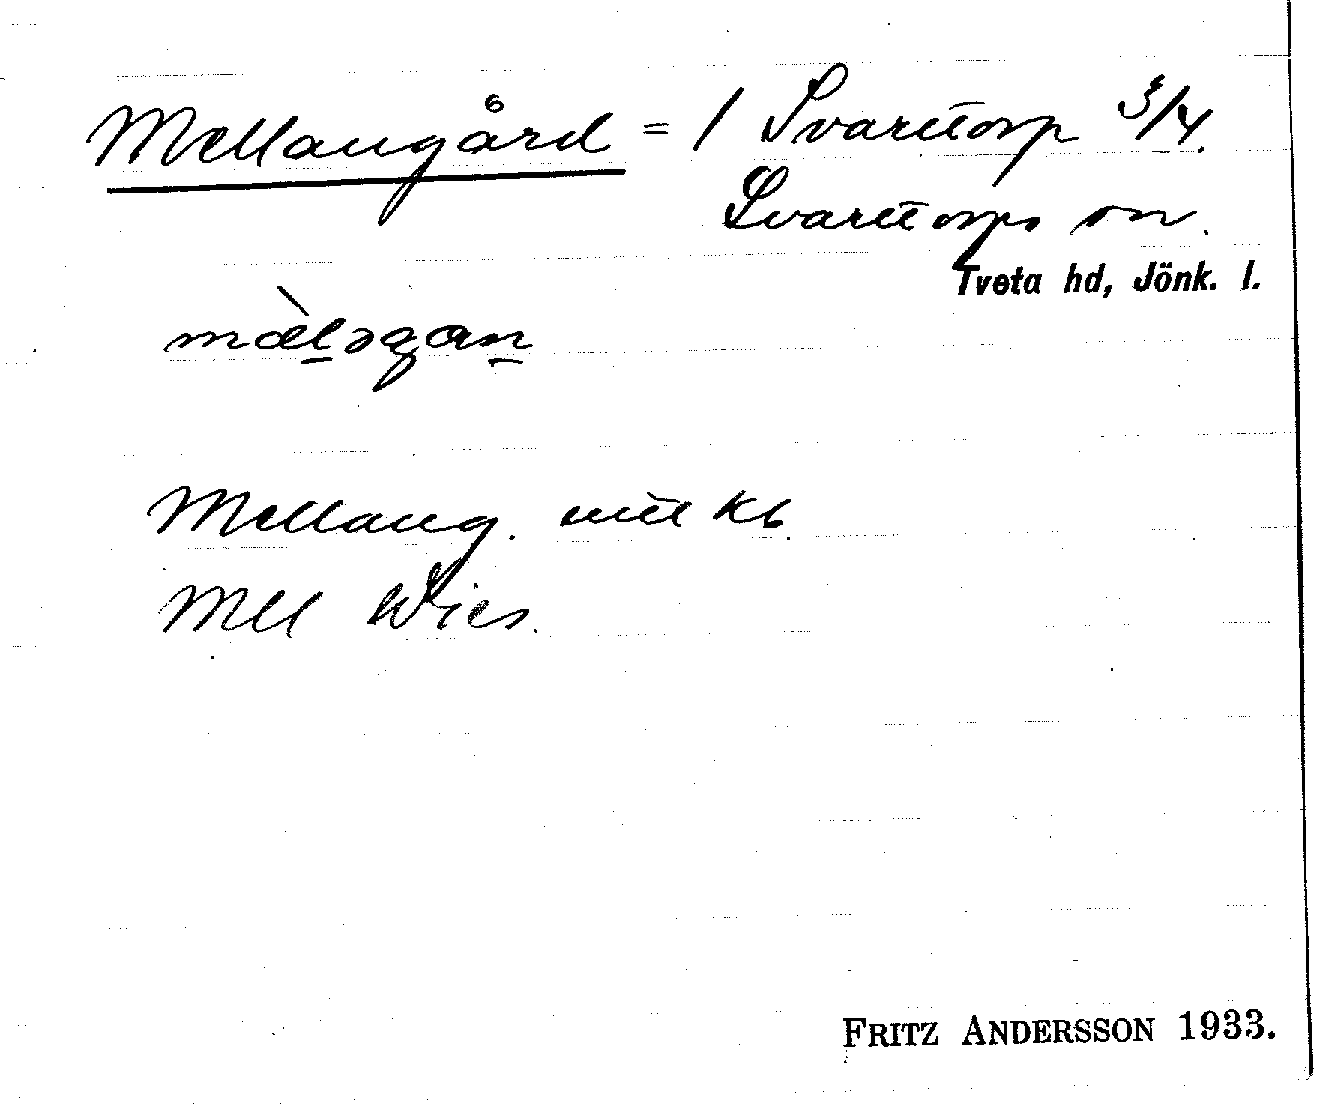 Mellangård = 1 Svarttorp 3/4.
Svarttorps sn.
Tveta hd, Jönk. l.
mæ̀ləgan
Mellang. utt kb.
Mell Wies.
FRITZ ANDERSSON 1933.